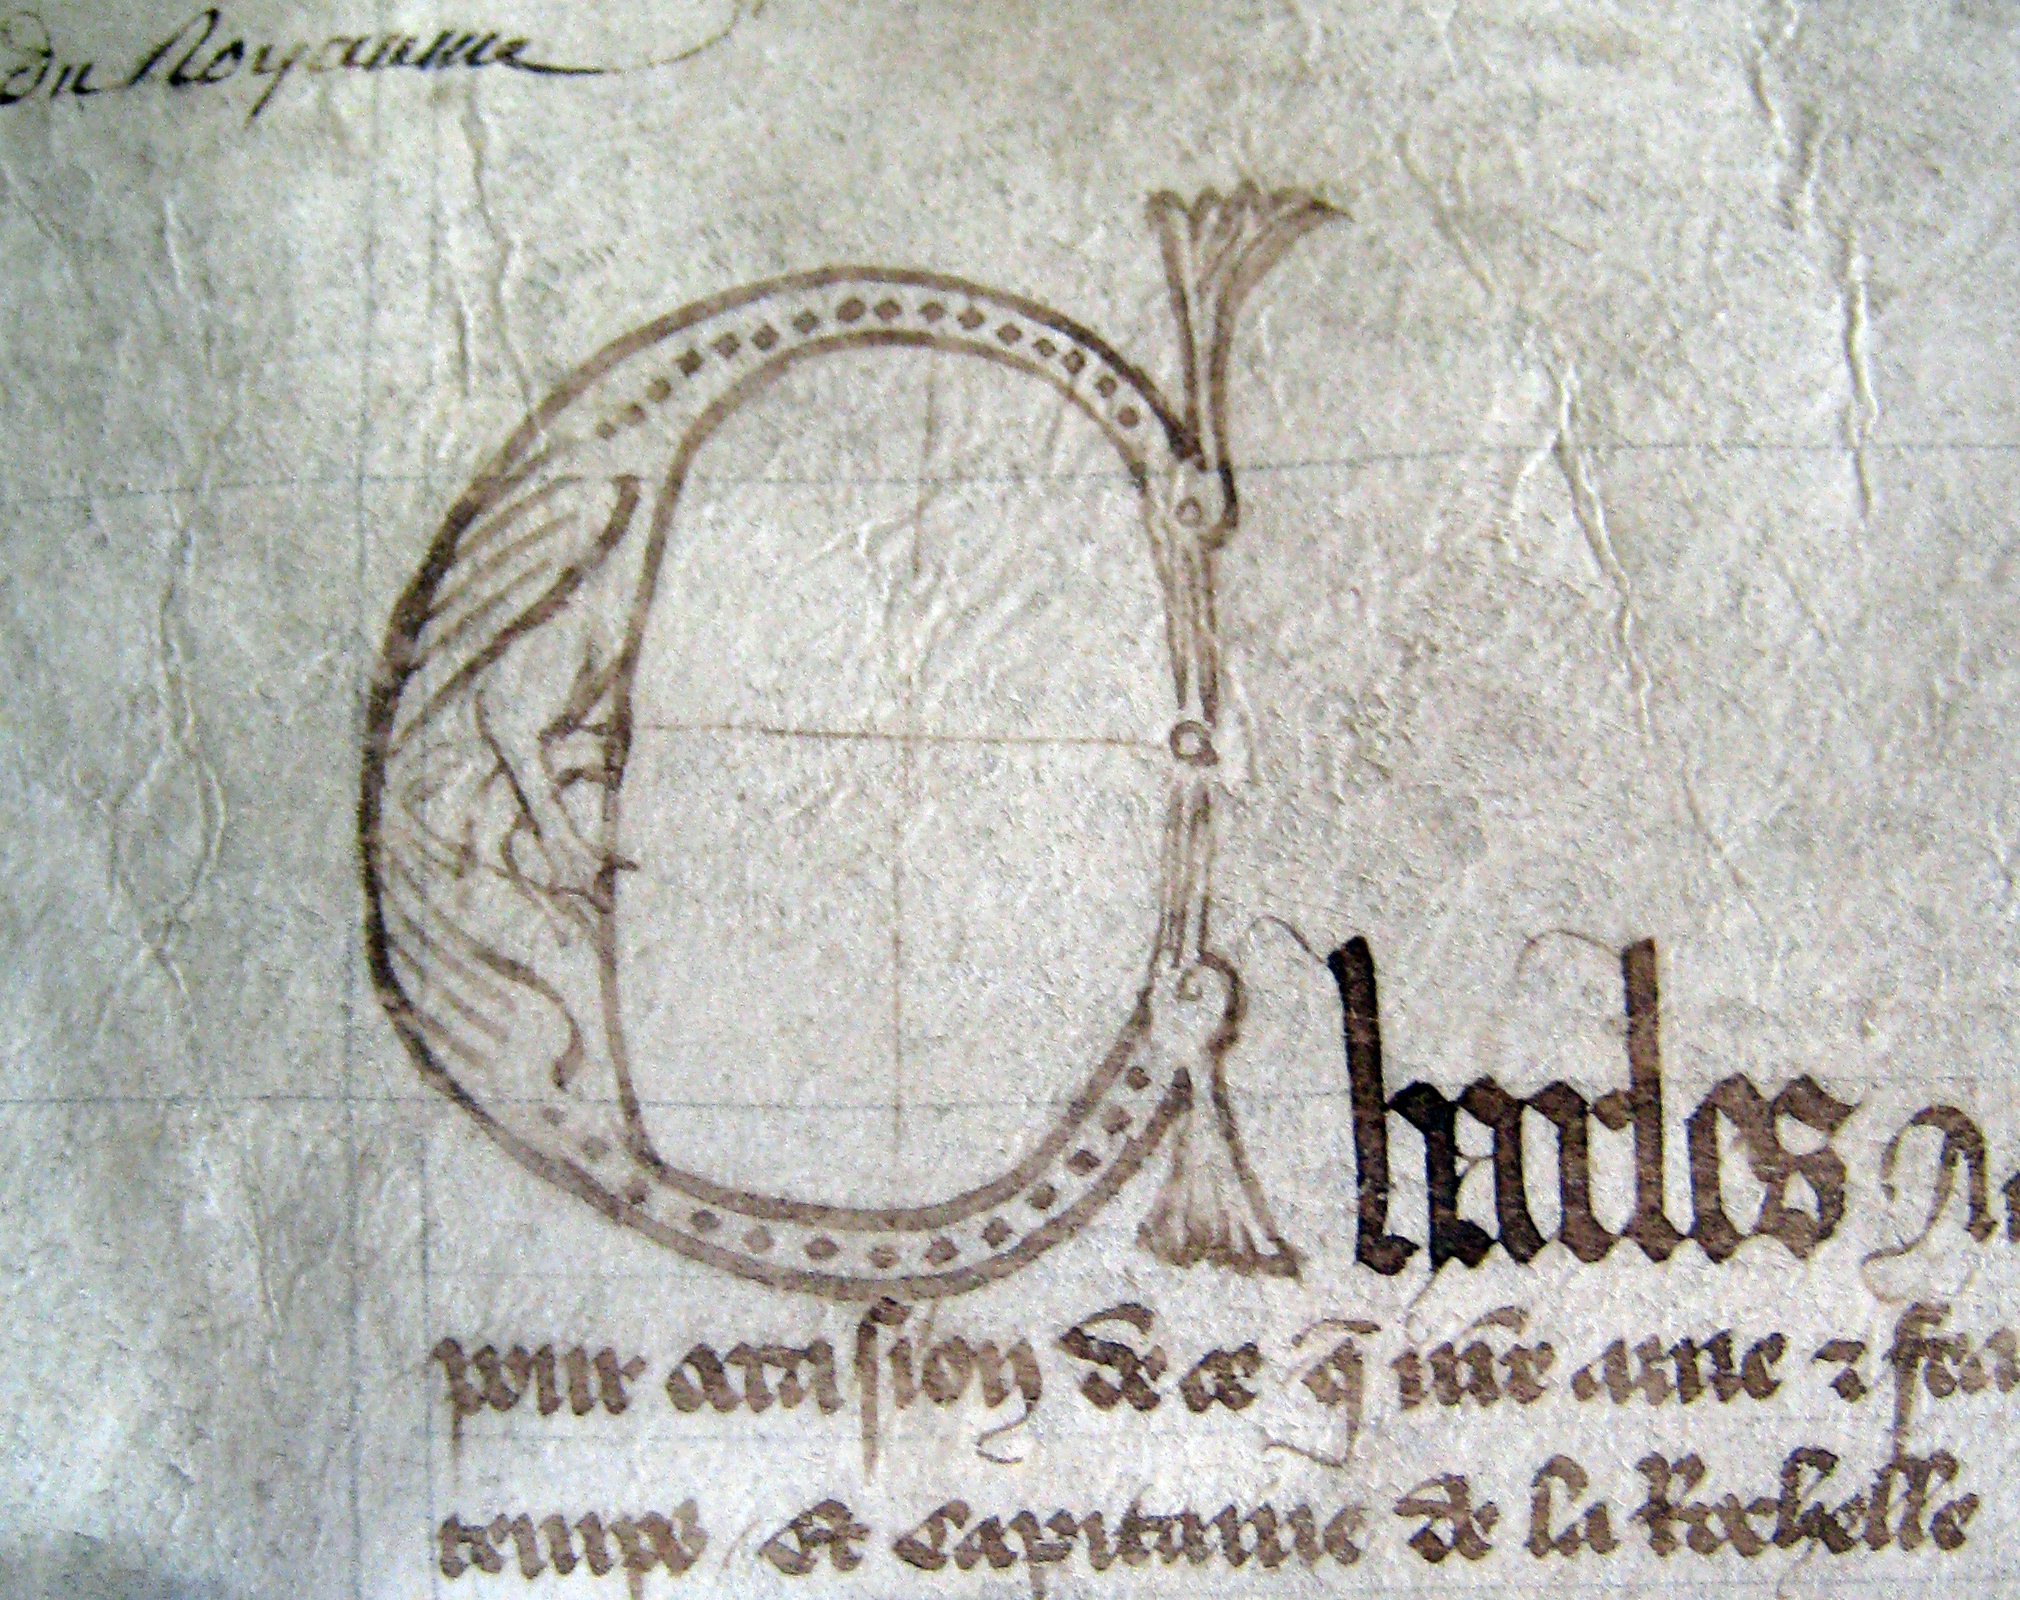 du Royaume
Charles
pour occasion de ce q̄ nr̄e ame ⁊ fea
temps / Et Capitaine de la Rochelle